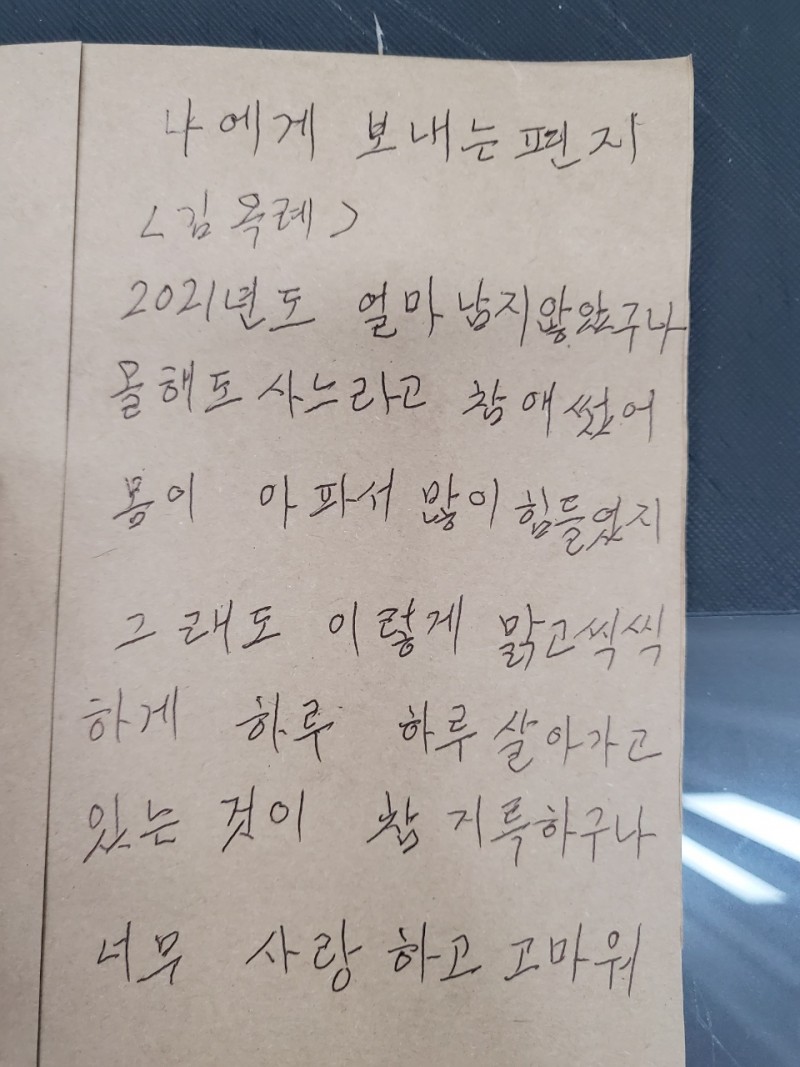 나에게 보내는 편지
<김옥례>
2021년도 얼마 남지않았구나
올해도 사느라고 참 애썼어
몸이 아파서 많이 힘들었지
그래도 이렇게 맑고씩씩
하게 하루 하루 살아가고
있는 것이 참 지륵하구나
너무 사랑 하고 고마워